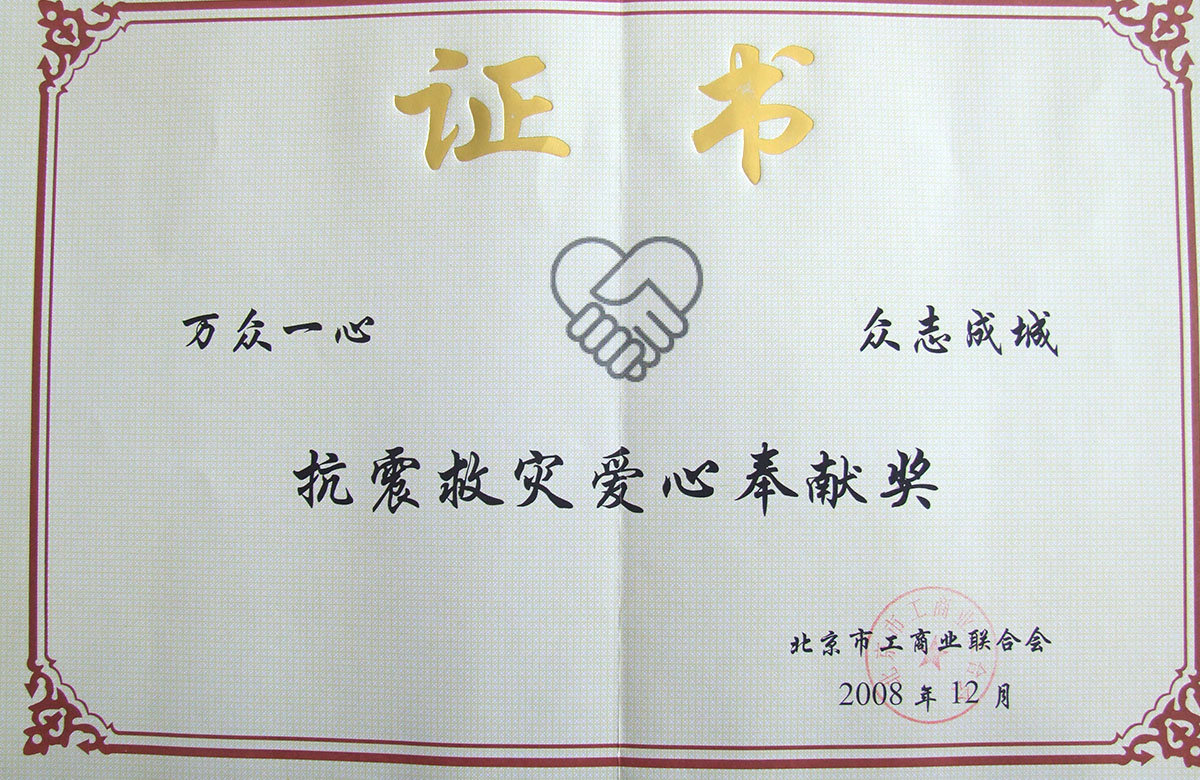 证书
万众一心 众志成城
抗震救灾爱心奉献奖
北京市工商业联合会
2008年12月